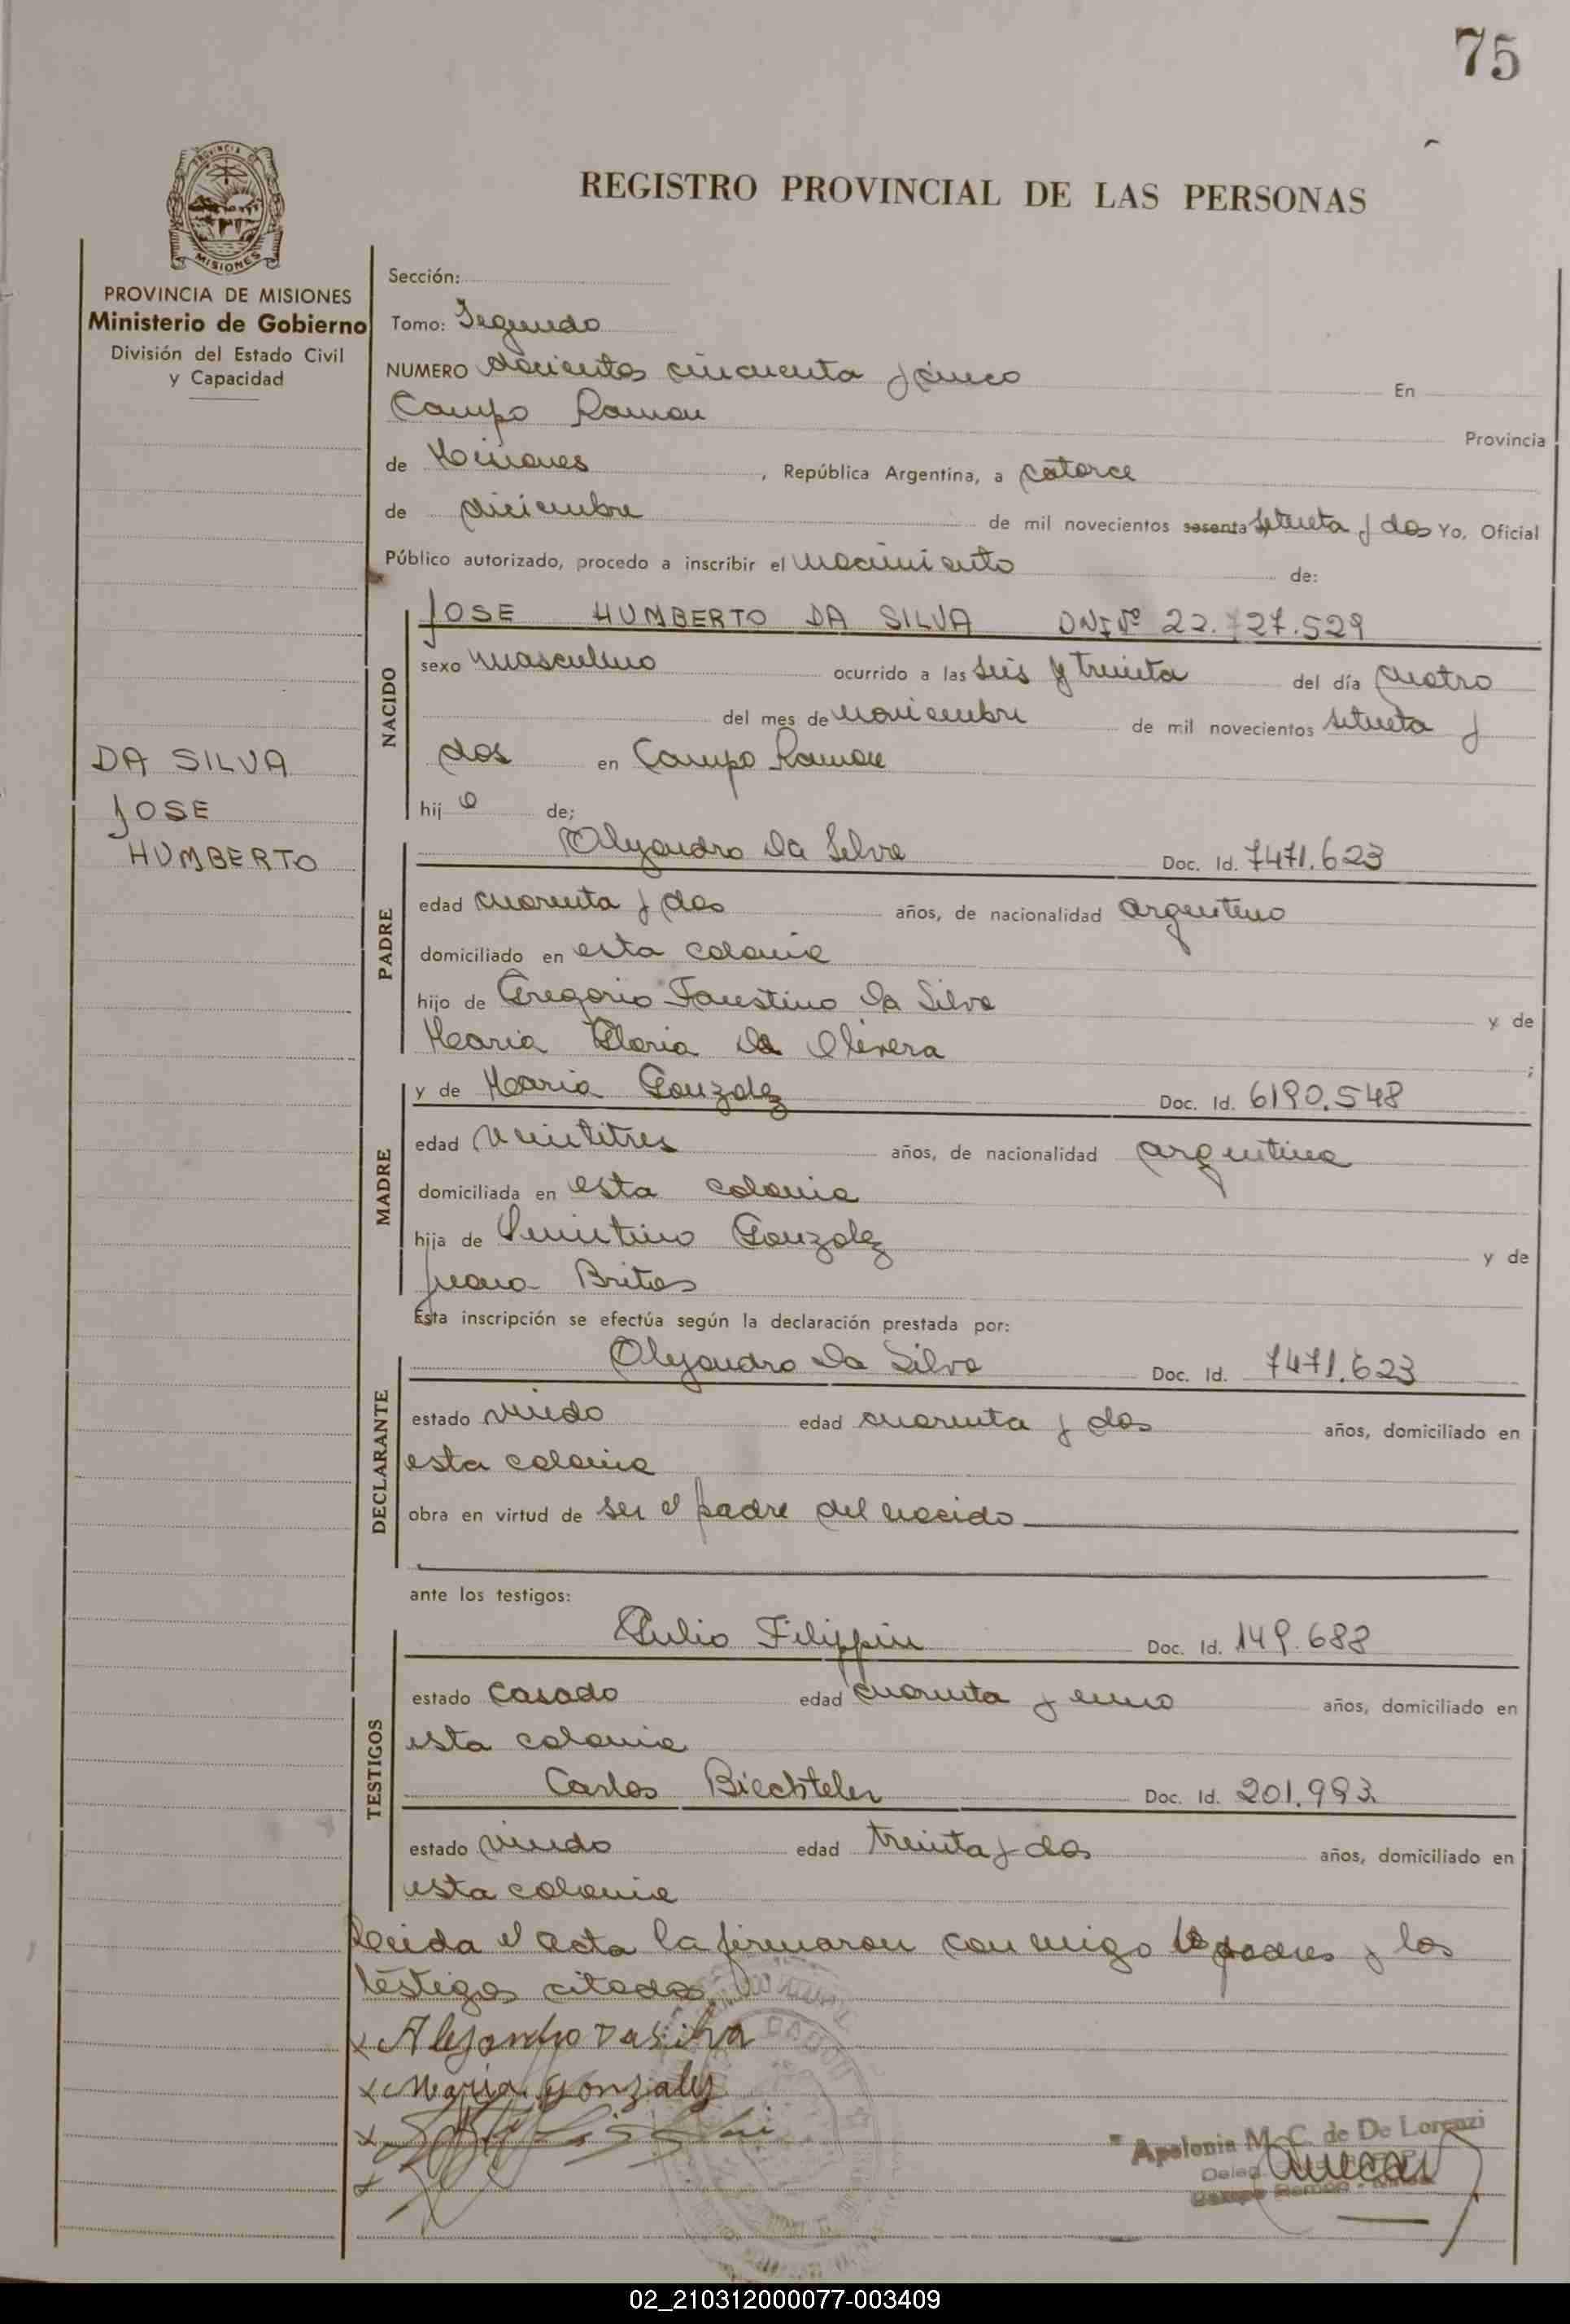 75
REGISTRO PROVINCIAL DE LAS PERSONAS
PROVINCIA DE
MISIONES
PROVINCIA DE MISIONES
Ministerio de Gobierno
División del Estado Civil
y Capacidad
DA SILVA
JOSE
HUMBERTO
Sección:
Tomo: Segundo
NUMERO docientos cincuenta y cinco En
Campo Ramon Provincia
de Misiones, República Argentina, a catorce
de diciembre de mil novecientos sesenta setenta y dos Yo, Oficial
Público autorizado, procedo a inscribir el nacimiento de:
NACIDO
JOSE HUMBERTO DA SILVA DNI Nº 22.727.529
sexo masculino ocurrido a las seis y treinta del día cuatro
del mes de noviembre de mil novecientos setenta y
dos en Campo Ramon
hij o de;
PADRE
Alejandro Da Silva Doc. Id. 7471.623
edad cuarenta y dos años, de nacionalidad argentino
domiciliado en esta colonia
hijo de Gregorio Faustino Da Silva y de
Maria Gloria Da Olivera ;
MADRE
y de Maria Gonzalez Doc. Id. 6190.548
edad veintitres años, de nacionalidad argentina
domiciliada en esta colonia
hija de Gonzalez y de
Juana Brites
Esta inscripción se efectúa según la declaración prestada por:
DECLARANTE
Alejandro Da Silva Doc. Id. 7471.623
estado viudo edad cuarenta y dos años, domiciliado en
esta colonia
obra en virtud de ser el padre del nacido
ante los testigos:
TESTIGOS
Julio Filippin Doc. Id. 149.688
estado casado edad cuarenta y uno años, domiciliado en
esta colonia
Carlos Biechteler Doc. Id. 201.993
estado viudo edad treinta y dos años, domiciliado en
esta colonia
Leida el acta la firmaron con migo los padres y los
testigos citados
x Alejandro Da Silva
x Maria gonzalez
x
x
Apolonia M. C. de De Lorenzi
Campo Ramon
02_210312000077-003409